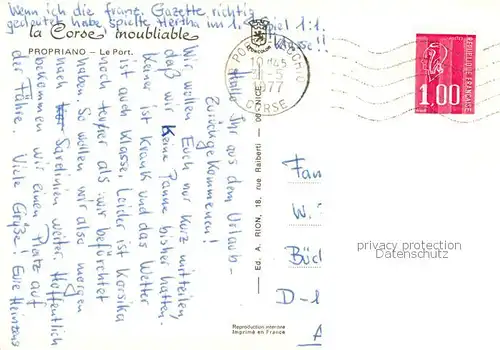 Wenn ich die franz. Gazette richtig
gedeutet habe spielte Hertha im 1. Spiel 1:1.
Klasse!!
la Corse inoubliable
PROPRIANO — Le Port.
Hallo Ihr aus dem Urlaub -
Zurückgekommenen!
Wir wollen Euch nur kurz mitteilen,
daß wir keine Panne bisher hatten.
Keiner ist krank und das Wetter
ist auch Klasse. Leider ist Korsika
noch teurer als wir befürchtet
haben. So wollen wir also morgen
nach Sardinien weiter. Hoffentlich
bekommen wir einen Platz auf
der Fähre. Viele Grüße! Eure
— Ed. A. RION, 18, rue Raiberti — 06 NICE
Reproduction interdite
Imprimé en France
10 H45
1977
CORSE
REPUBLIQUE FRANÇAISE
1,00
Fam
W.
Büc
D-1
privacy protection
Datenschutz